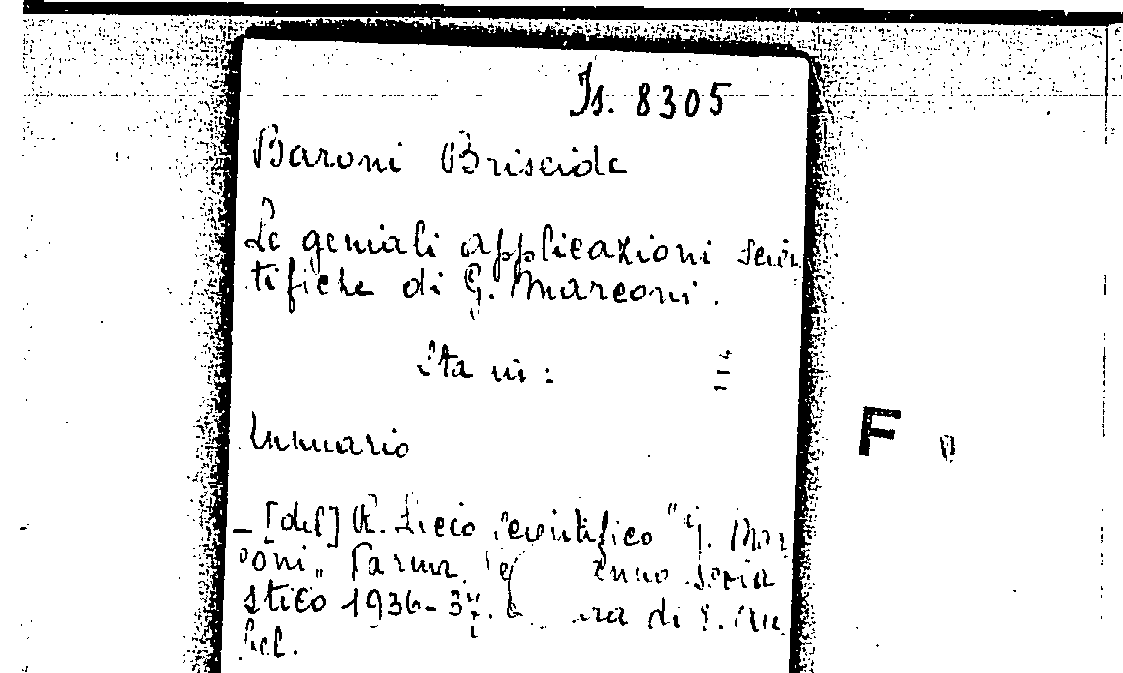 Is. 8305
Baroni Briseide
Le geniali applicazioni scien
tifiche di G. Marconi.
Sta in:
Annuario
- [del] R. Liceo scientifico "G. Mar
coni" Parma. anno scola
stico 1936-37. di